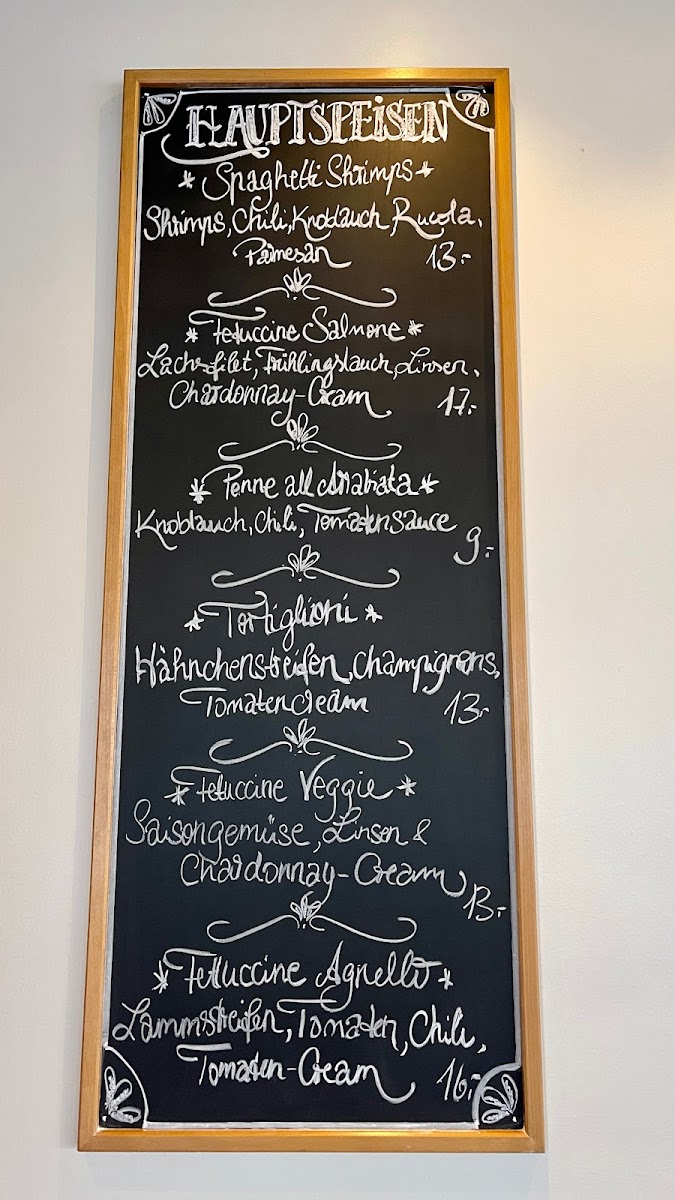 HAUPTSPEISEN
* Spaghetti Shrimps *
Shrimps, Chili, Knoblauch, Rucola,
Parmesan 13.-
* Fettuccine Salmone *
Lachsfilet, Frühlingslauch, Linsen,
Chardonnay-Cream 17.-
* Penne all Arrabiata *
Knoblauch, Chili, Tomatensauce
9.-
* Tortiglioni *
Hähnchenstreifen, Champignons,
Tomatencream 13.-
* Fettuccine Veggie *
Saisongemüse, Linsen &
Chardonnay-Cream
13.-
* Fettuccine Agnello *
Lammstreifen, Tomaten, Chili,
Tomaten-Cream 16.-